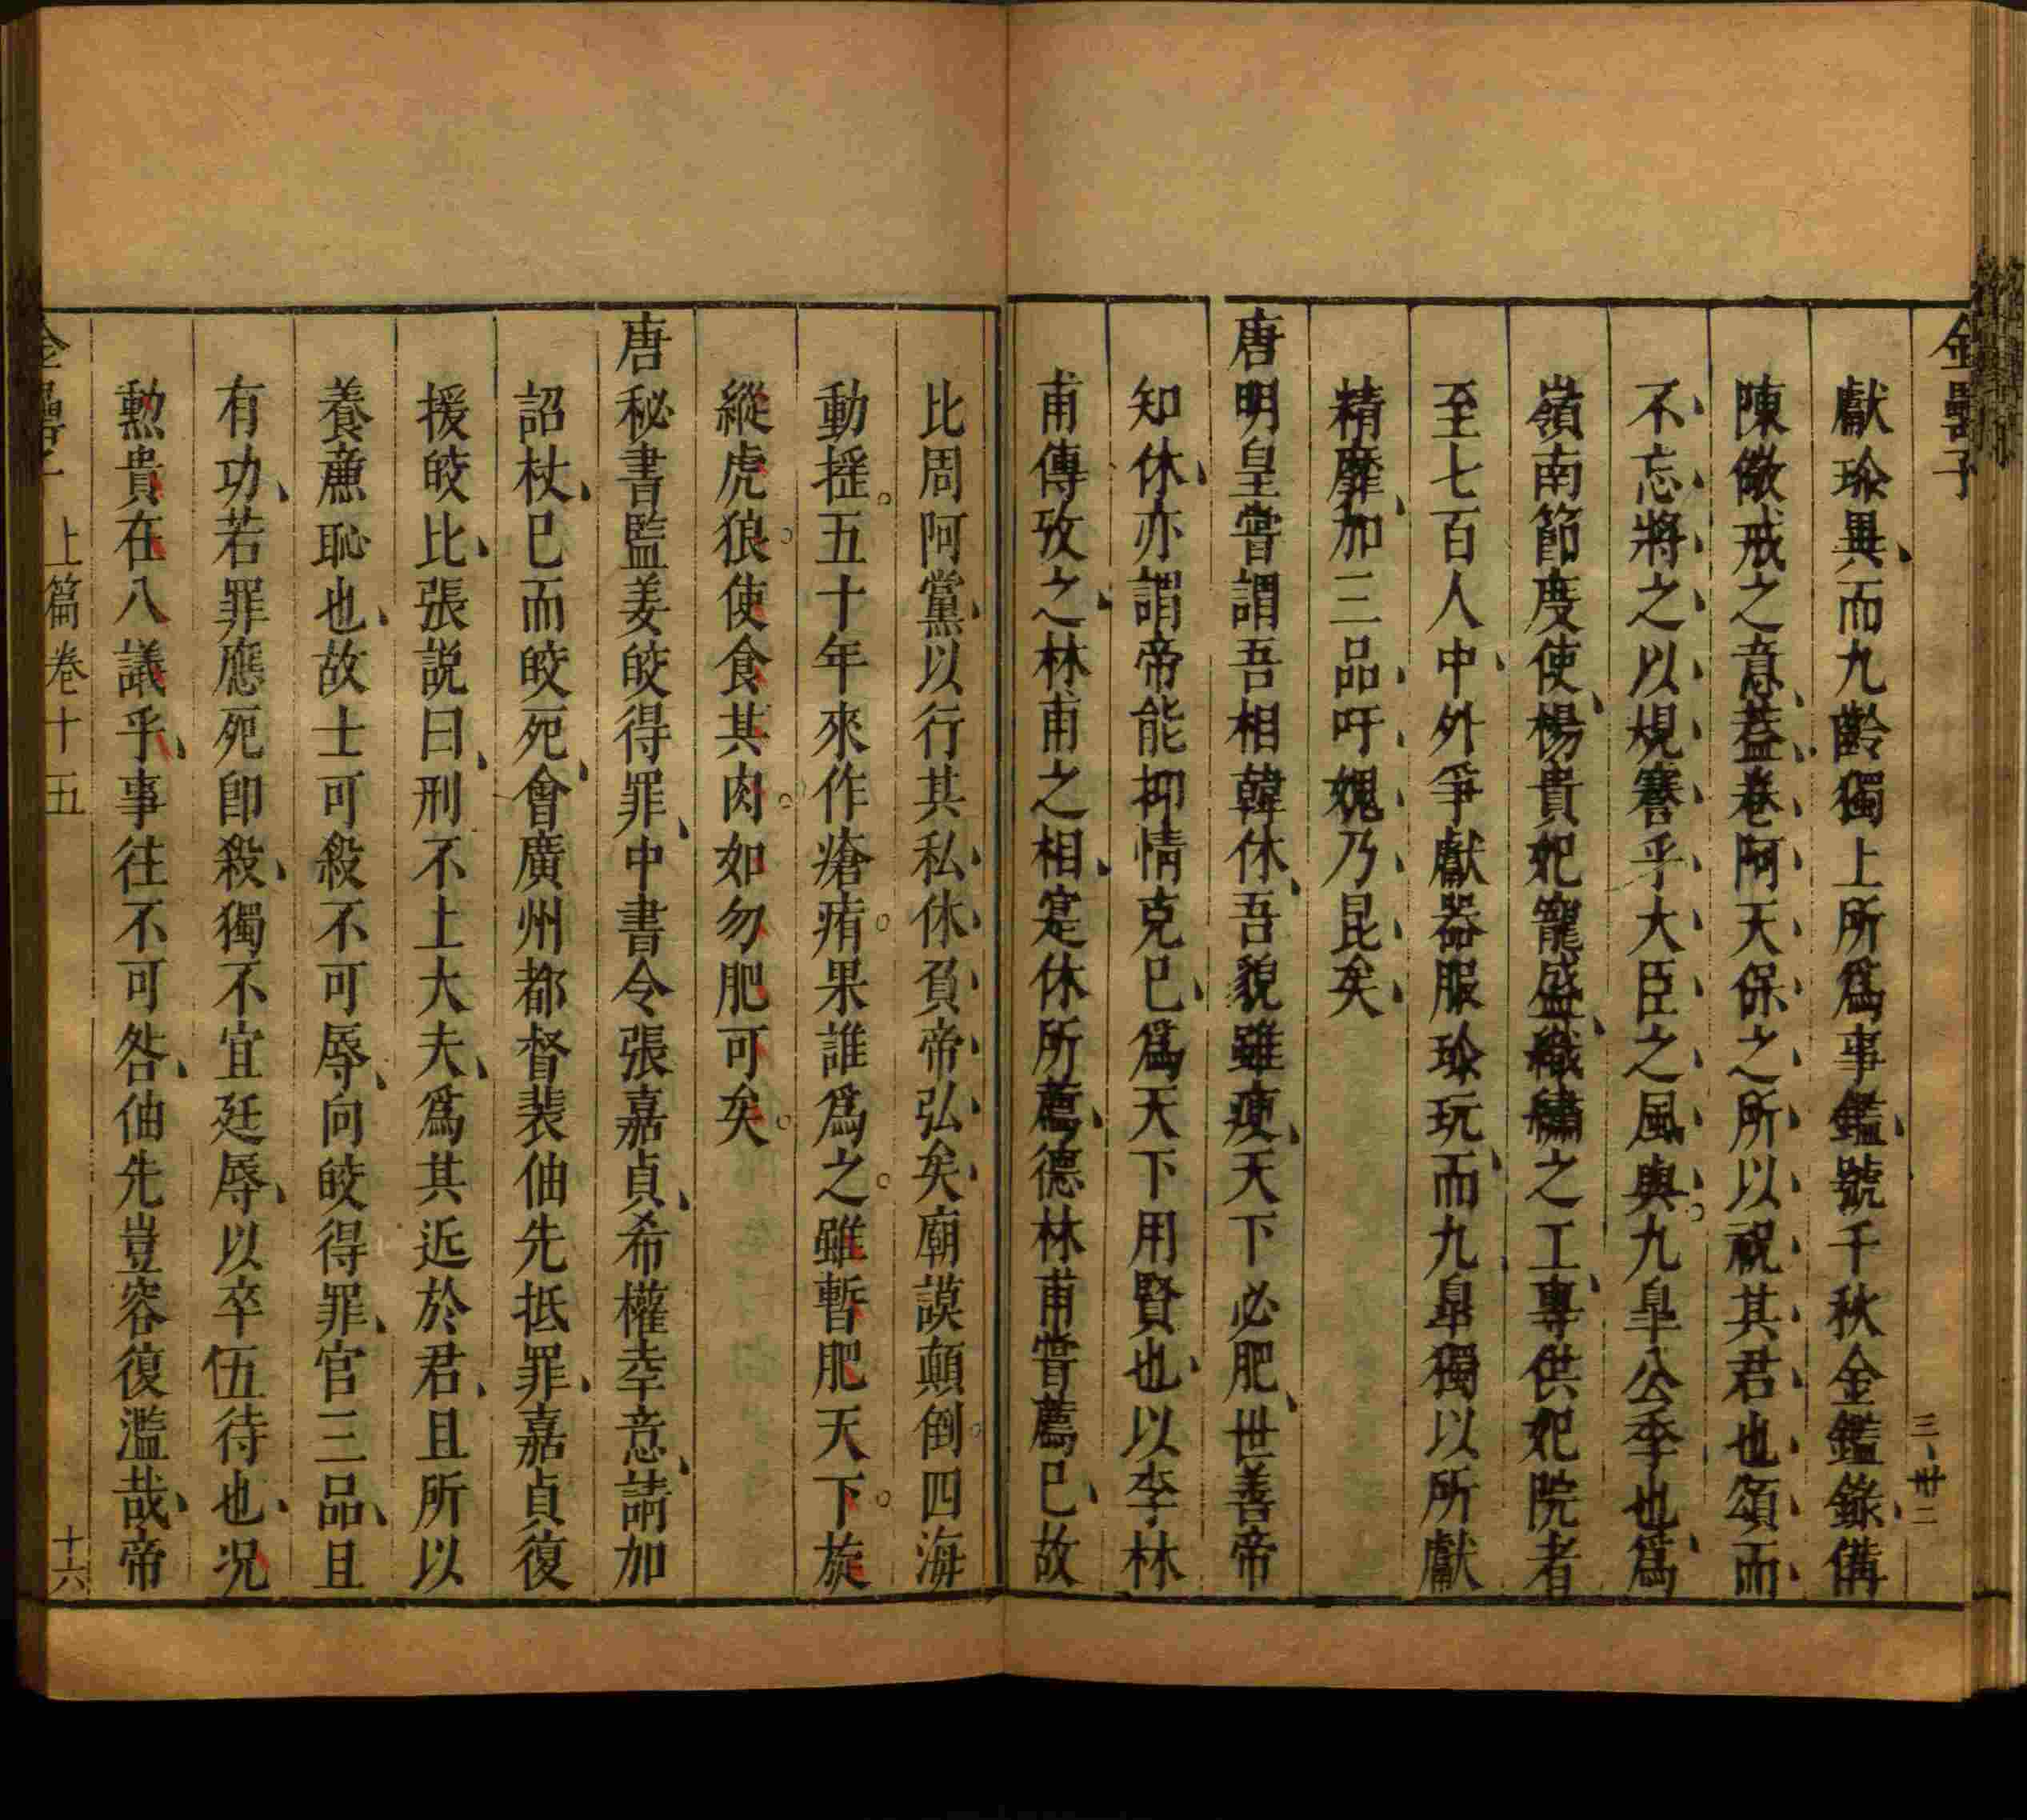 金罍子
三卅二
獻珎異而九齡獨上所爲事鑑號千秋金鑑錄備
陳儆戒之意葢卷阿天保之所以祝其君也頌而
不忘將之以規謇乎大臣之風與九臯公季也爲
嶺南節度使楊貴妃寵盛織繡之工專供妃院者
至七百人中外爭獻器服珎玩而九臯獨以所獻
精靡加三品吁媿乃昆矣
唐明皇嘗謂吾相韓休吾貌雖瘦天下必肥世善帝
知休亦謂帝能抑情克巳爲天下用賢也以李林
甫傳攷之林甫之相寔休所薦德林甫嘗薦巳故
比周阿黨以行其私休負帝弘矣廟謨顛倒四海
動搖五十年來作瘡痏果誰爲之雖暫肥天下旋
縱虎狼使食其肉如勿肥可矣
唐秘書監姜皎得罪中書令張嘉貞希權幸意請加
詔杖巳而皎死會廣州都督裴伷先抵罪嘉貞復
援皎比張説曰刑不上大夫爲其近於君且所以
養廉恥也故士可殺不可辱向皎得罪官三品且
有功若罪應死卽殺獨不宜廷辱以卒伍待也况
勲貴在八議乎事往不可咎伷先豈容復濫哉帝
金罍子 上篇卷十五 十六